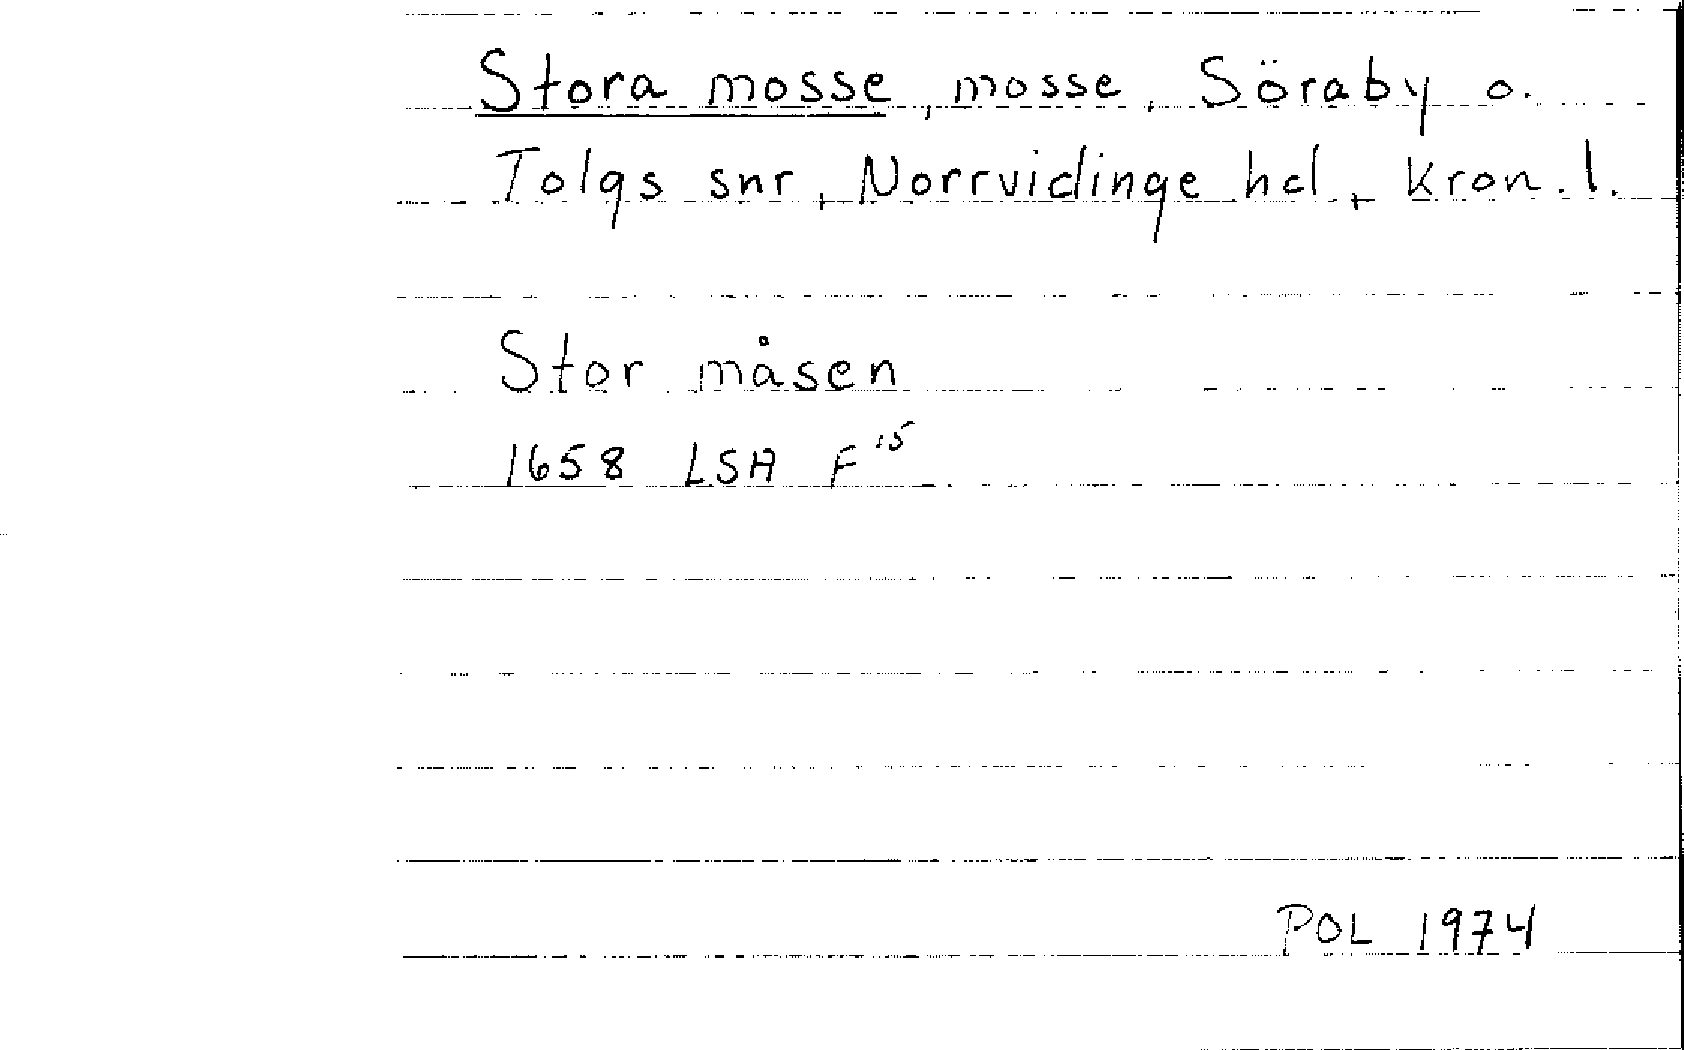 Stora mosse, mosse, Söraby o.
Tolgs snr, Norrvidinge hd, Kron. l.
Stor måsen
1658 LSA F 15
POL 1974